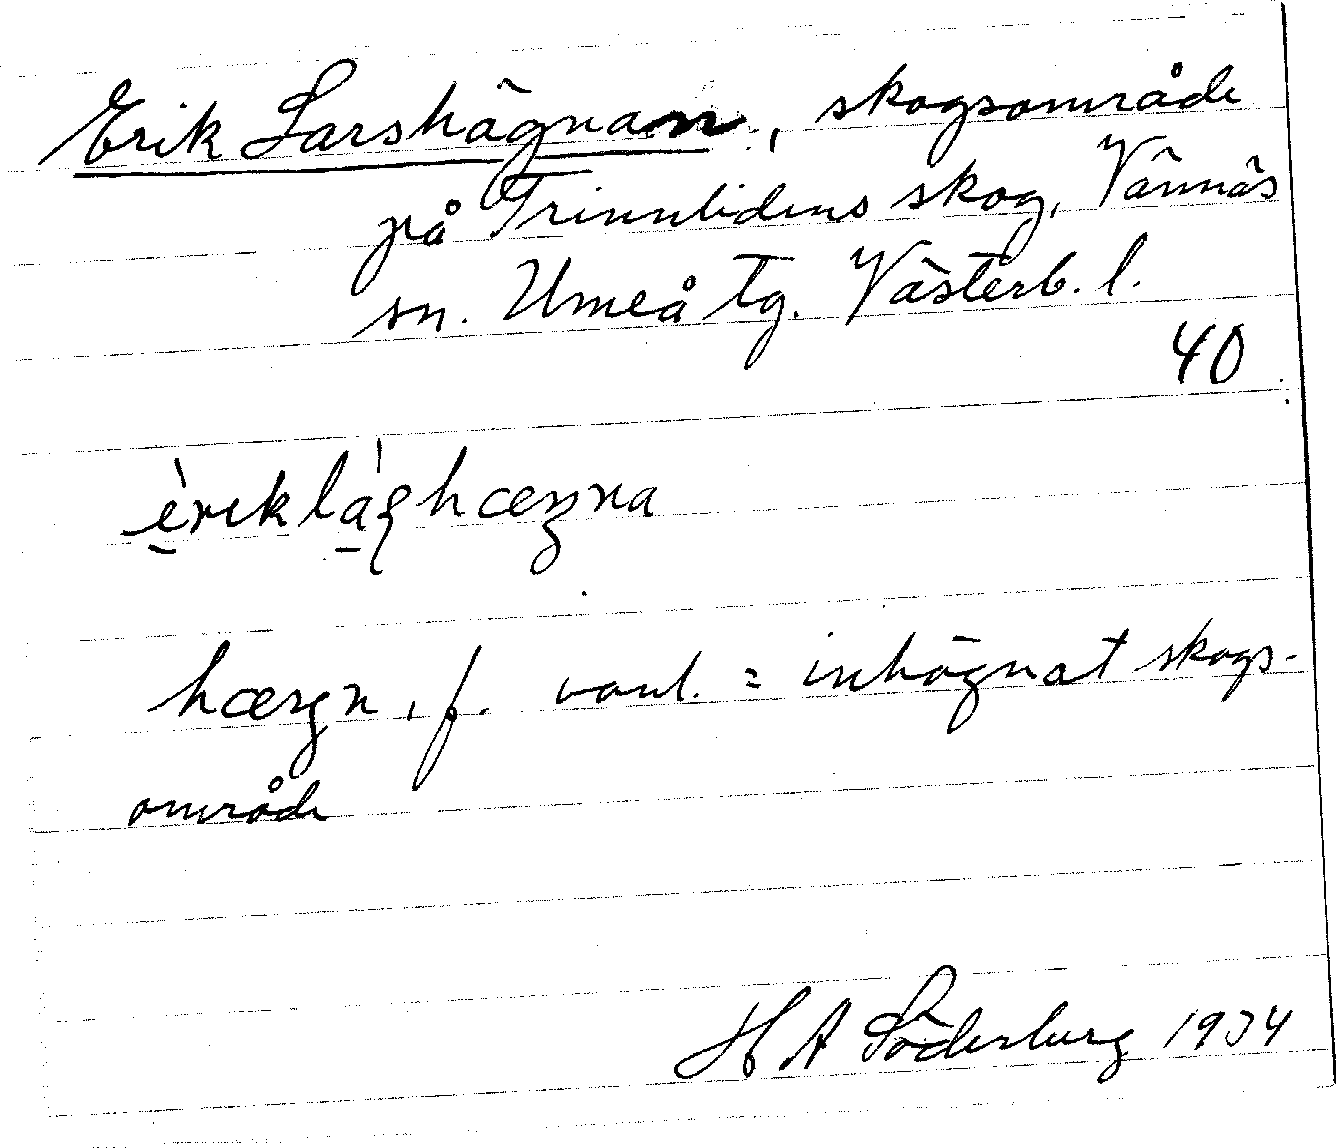 Erik Larshägnan, skogsområde
på Trinnlidens skog, Vännäs
sn. Umeå tg. Västerb. l.
40
èrɩklàʂhæŋna
hæŋn, f. vanl. = inhägnat skogs-
område
H A Söderberg 1934